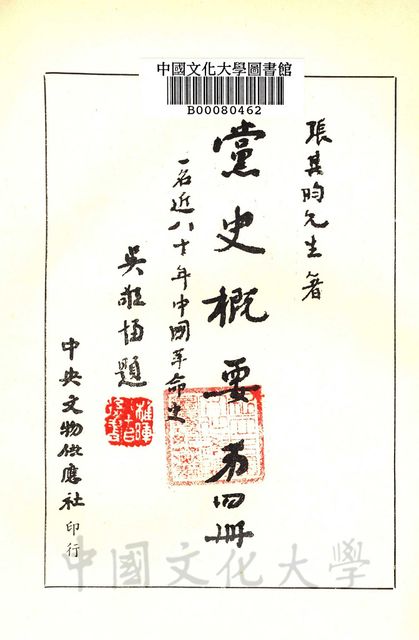 中國文化大學圖書館
B00080462
張其昀先生著
黨史概要 第四冊
一名近八十年中國革命史
吳敬恆題
中央文物供應社印行
中國文化大學